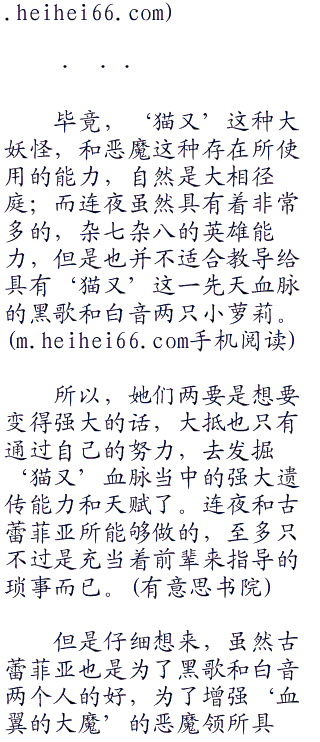 .heihei66.com)
. . .
毕竟，‘猫又’这种大
妖怪，和恶魔这种存在所使
用的能力，自然是大相径
庭；而连夜虽然具有着非常
多的，杂七杂八的英雄能
力，但是也并不适合教导给
具有‘猫又’这一先天血脉
的黑歌和白音两只小萝莉。
(m.heihei66.com手机阅读)
所以，她们两要是想要
变得强大的话，大抵也只有
通过自己的努力，去发掘
‘猫又’血脉当中的强大遗
传能力和天赋了。连夜和古
蕾菲亚所能够做的，至多只
不过是充当着前辈来指导的
琐事而已。(有意思书院)
但是仔细想来，虽然古
蕾菲亚也是为了黑歌和白音
两个人的好，为了增强‘血
翼的大魔’的恶魔领所具